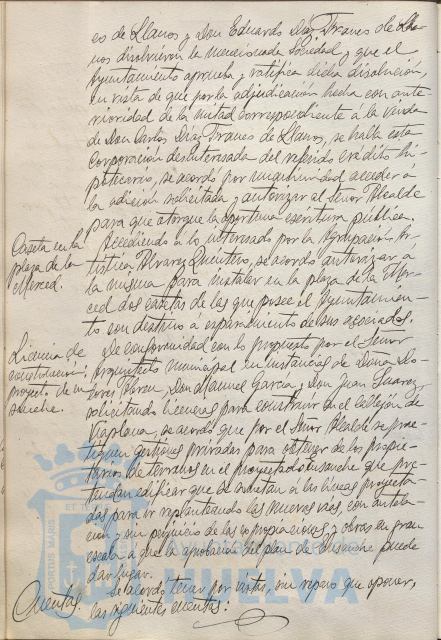 es de Llanos y Don Eduardo Diaz Franes de Lla-
nos disolvieron la mencionada Sociedad y que el
Ayuntamiento aprueba y ratifica dicha disolución,
en vista de que por la adjudicación hecha con ante-
rioridad de la mitad correspondiente á la viuda
de Don Carlos Diaz Franes de Llanos, se halla esta
Corporación desinteresada del referido crédito hi-
potecario, se acordó por unanimidad acceder a
la adición solicitada y autorizar al Señor Alcalde
para que otorgue la oportuna escritura pública.
Caseta en la
plaza de la
Merced.
Accediendo á lo interesado por la Agrupación Ar-
tística Alvarez Quintero, se acordó autorizar a
la misma para instalar en la plaza de la Mer-
ced dos casetas de las que posee el Ayuntamien-
to con destino á esparcimiento de sus asociados.
Licencia de
construcción
proyecto de en-
sanche.
De conformidad con lo propuesto por el Señor
Arquitecto municipal en instancias de Dona Do-
lores Abreu, Don Manuel Garcia y Don Juan Suarez,
solicitando licencia para construir en el Callejón de
Viaplana, se acordó que por el Señor Alcalde se prac-
tiquen gestiones privadas para obtener de los propie-
tarios de terrenos en el proyectado ensanche que pre-
tendan edificar que se sometan á las líneas proyecta-
das para ir replanteando las nuevas vias, con antela-
cion y sin perjuicio de las expropiaciones y obras en gran
escala á que la aprobación del plan de Ensanche puede
dar lugar.
Cuentas.
Se acordó tener por vistas, sin reparo que oponer,
las siguientes cuentas:
PORTUS MARIS
ET TE
HUELVA